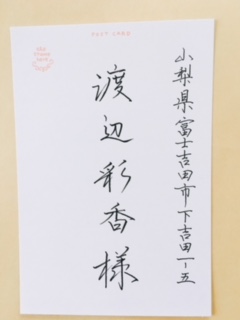 POST CARD
山梨県富士吉田市下吉田一-五
渡辺彩香様